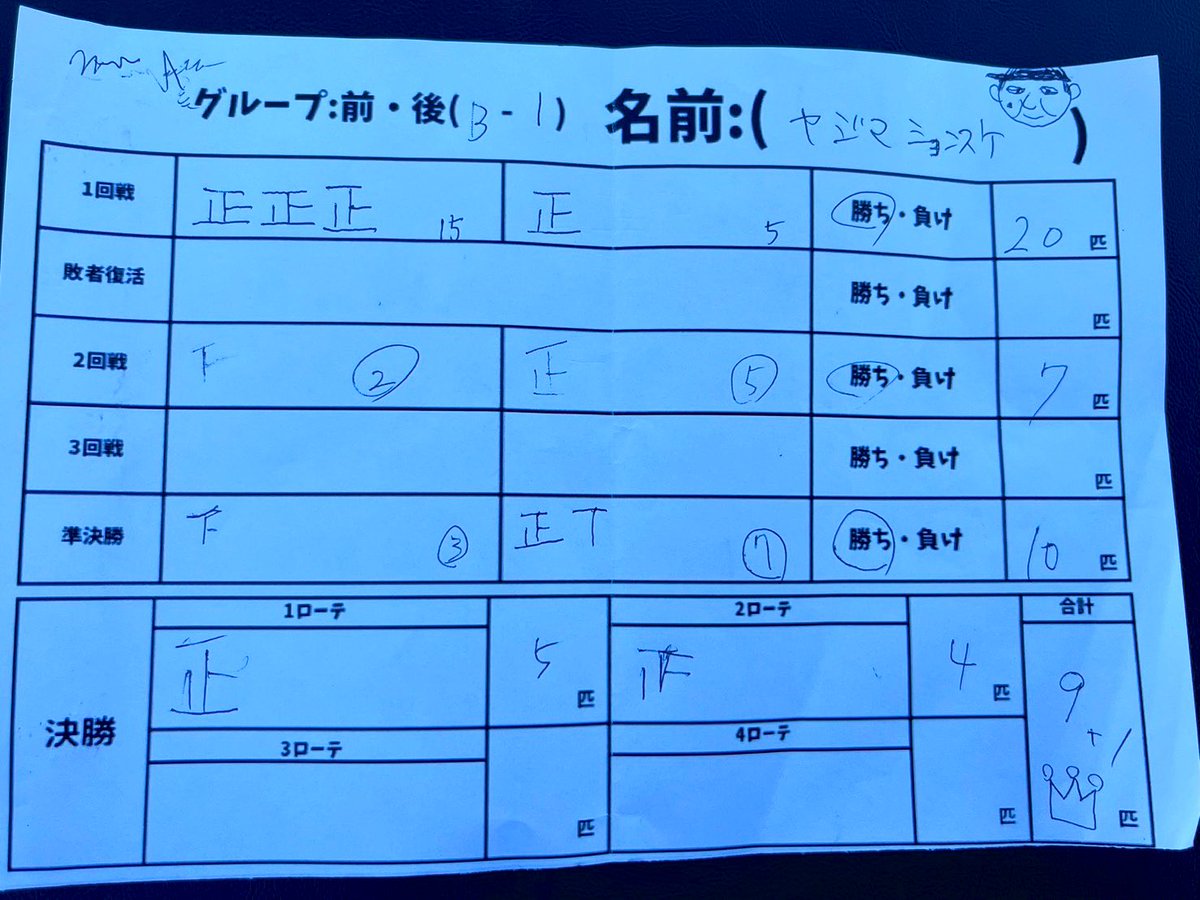 グループ:前・後(B-1) 名前:(ヤジマ ションスケ)
1回戦 正正正 15 正 5 勝ち・負け 20匹
敗者復活 勝ち・負け 匹
2回戦 ② 正 ⑤ 勝ち・負け 7匹
3回戦 勝ち・負け 匹
準決勝 下 ③ 正T ⑦ 勝ち・負け 10匹
決勝
1ローテ 2ローテ 合計
正 5匹 4匹 9
+1
3ローテ 4ローテ
匹 匹 匹